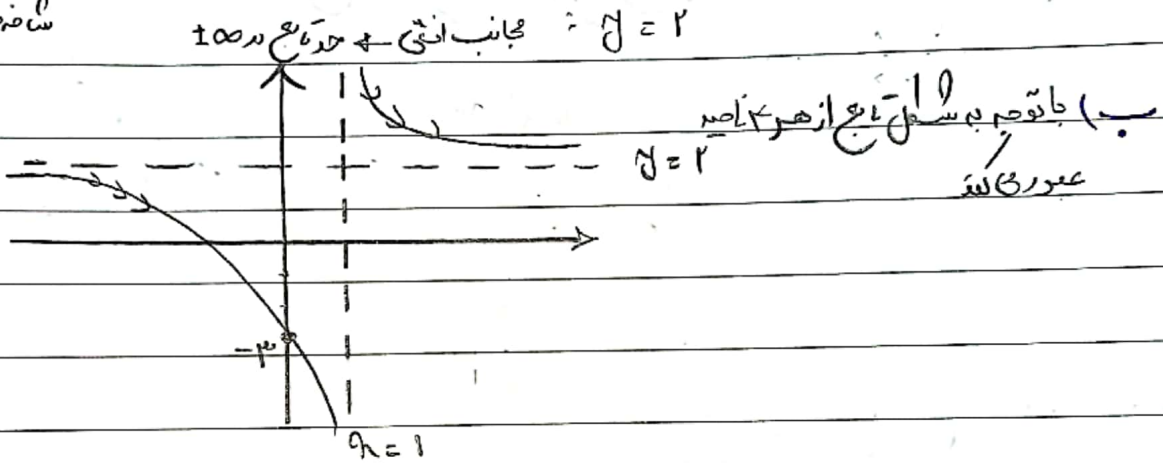 مجانب افقی ← حد تابع در ±∞ : y = ۲
ب) با توجه به شکل تابع از هر ۴ ناحیه
عبور می‌کند
y = ۲
-۳
x = ۱